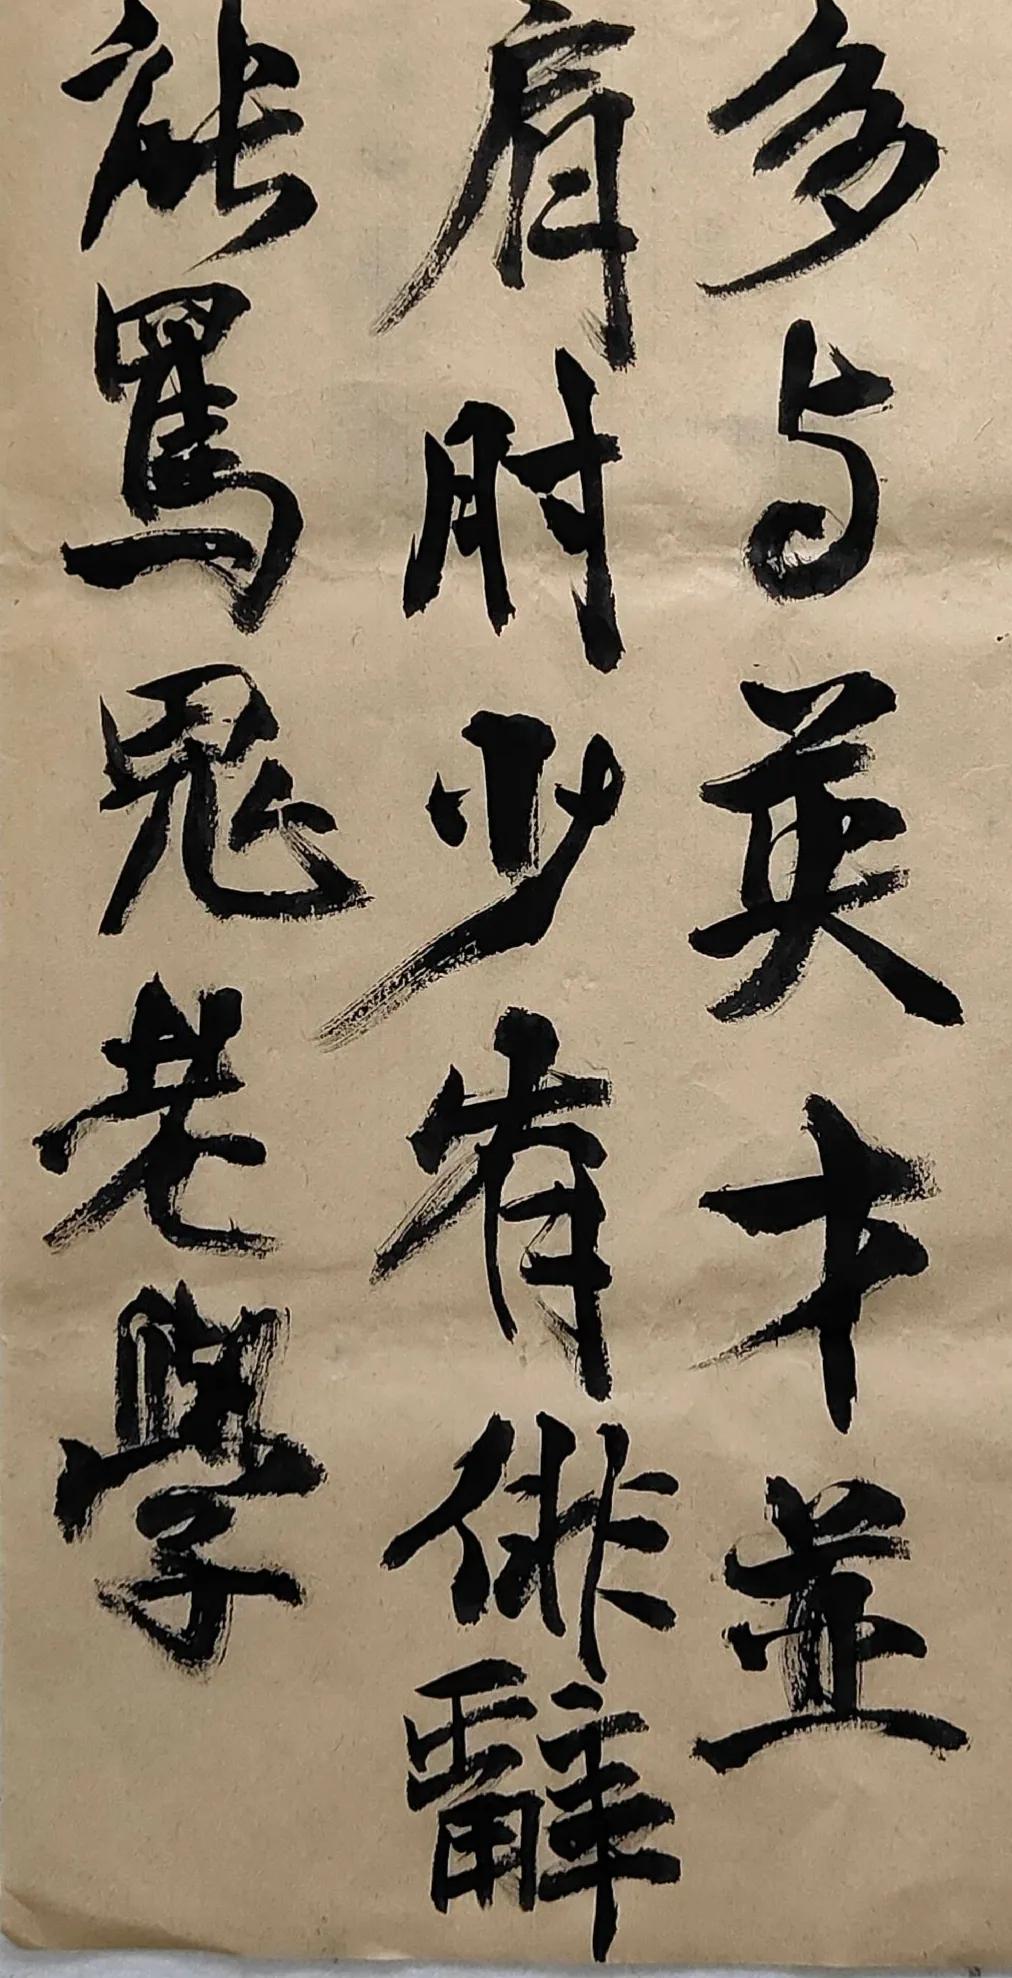 多与英才並
肩肘少有俳辭
能罵鬼老學